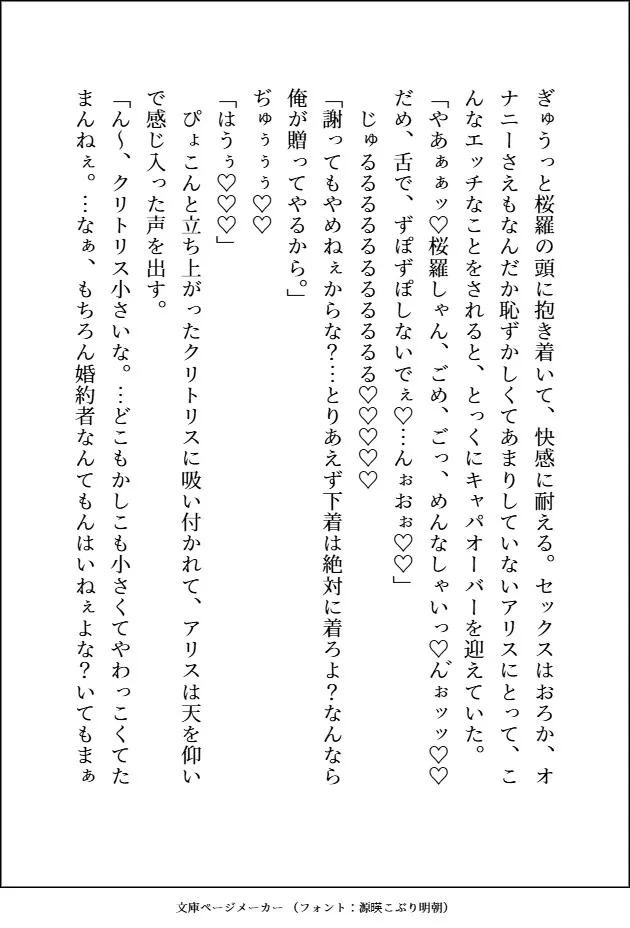 ぎゅうっと桜羅の頭に抱き着いて、快感に耐える。セックスはおろか、オ
ナニーさえもなんだか恥ずかしくてあまりしていないアリスにとって、こ
んなエッチなことをされると、とっくにキャパオーバーを迎えていた。
「やあぁぁッ♡桜羅しゃん、ごめ、ごっ、めんなしゃいっ♡ん゛ぉッッ♡♡
だめ、舌で、ずぽずぽしないでぇ♡…んぉおぉ♡♡」
　じゅるるるるるるるるるるる♡♡♡♡♡
「謝ってもやめねぇからな？…とりあえず下着は絶対に着ろよ？なんなら
俺が贈ってやるから。」
ぢゅぅぅぅ♡♡
「はうぅ♡♡♡」
　ぴょこんと立ち上がったクリトリスに吸い付かれて、アリスは天を仰い
で感じ入った声を出す。
「ん～、クリトリス小さいな。…どこもかしこも小さくてやわっこくてた
まんねぇ。…なぁ、もちろん婚約者なんてもんはいねぇよな？いてもまぁ
文庫ページメーカー（フォント：源暎こぶり明朝）